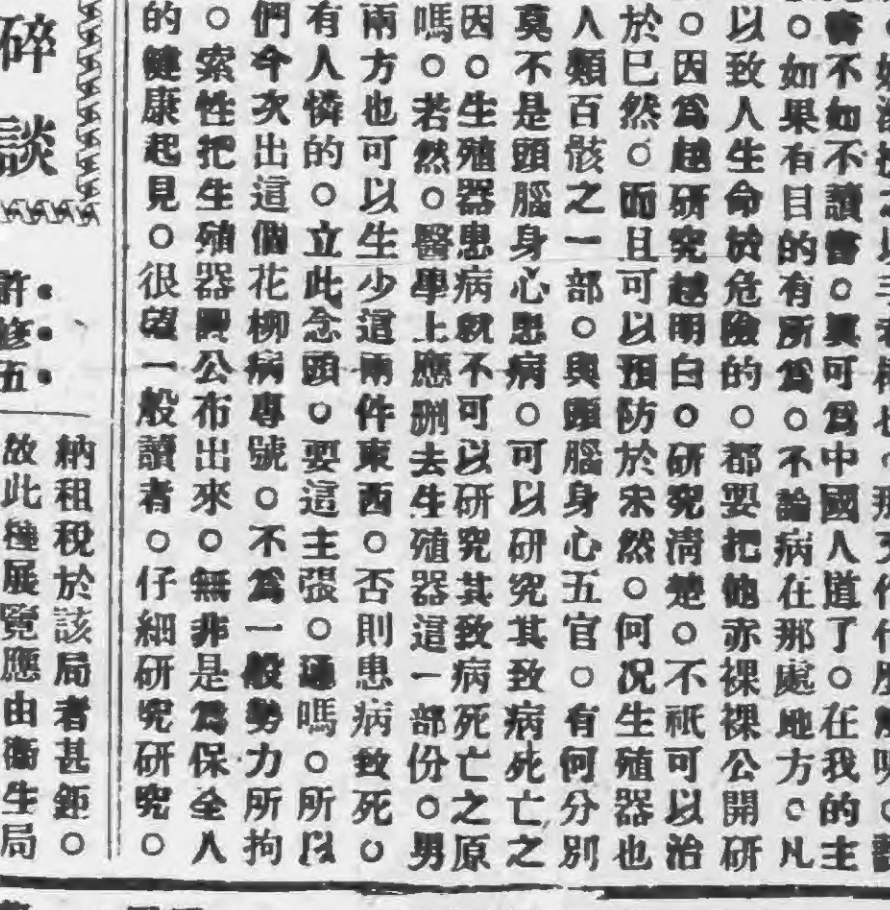 書不如不讀書。眞可爲中國人道了。在我的主
。如果有目的有所爲。不論病在那處地方。凡
以致人生命於危險的。都要把他赤裸裸公開研
。因爲越研究越明白。硏究淸楚。不祇可以治
於已然。而且可以預防於未然。何况生殖器也
人類百骸之一部。與頭腦身心五官。有何分別
莫不是頭腦身心患病。可以研究其致病死亡之
因。生殖器患病就不可以研究其致病死亡之原
嗎。若然。醫學上應删去生殖器這一部份。男
兩方也可以生少這兩件東西。否則患病致死。
有人憐的。立此念頭。要這主張。通嗎。所以
們今次出這個花柳病專號。不爲一般勢力所拘
。索性把生殖器公布出來。無非是爲保全人
的健康起見。很望一般讀者。仔細研究研究。
碎談
許修五
納租稅於該局者甚鉅。
故此種展覽應由衞生局